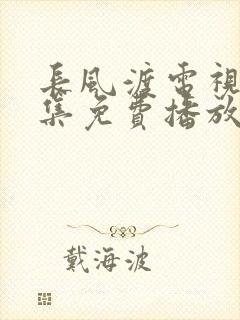 長風渡電視
集免費播放
戴海波